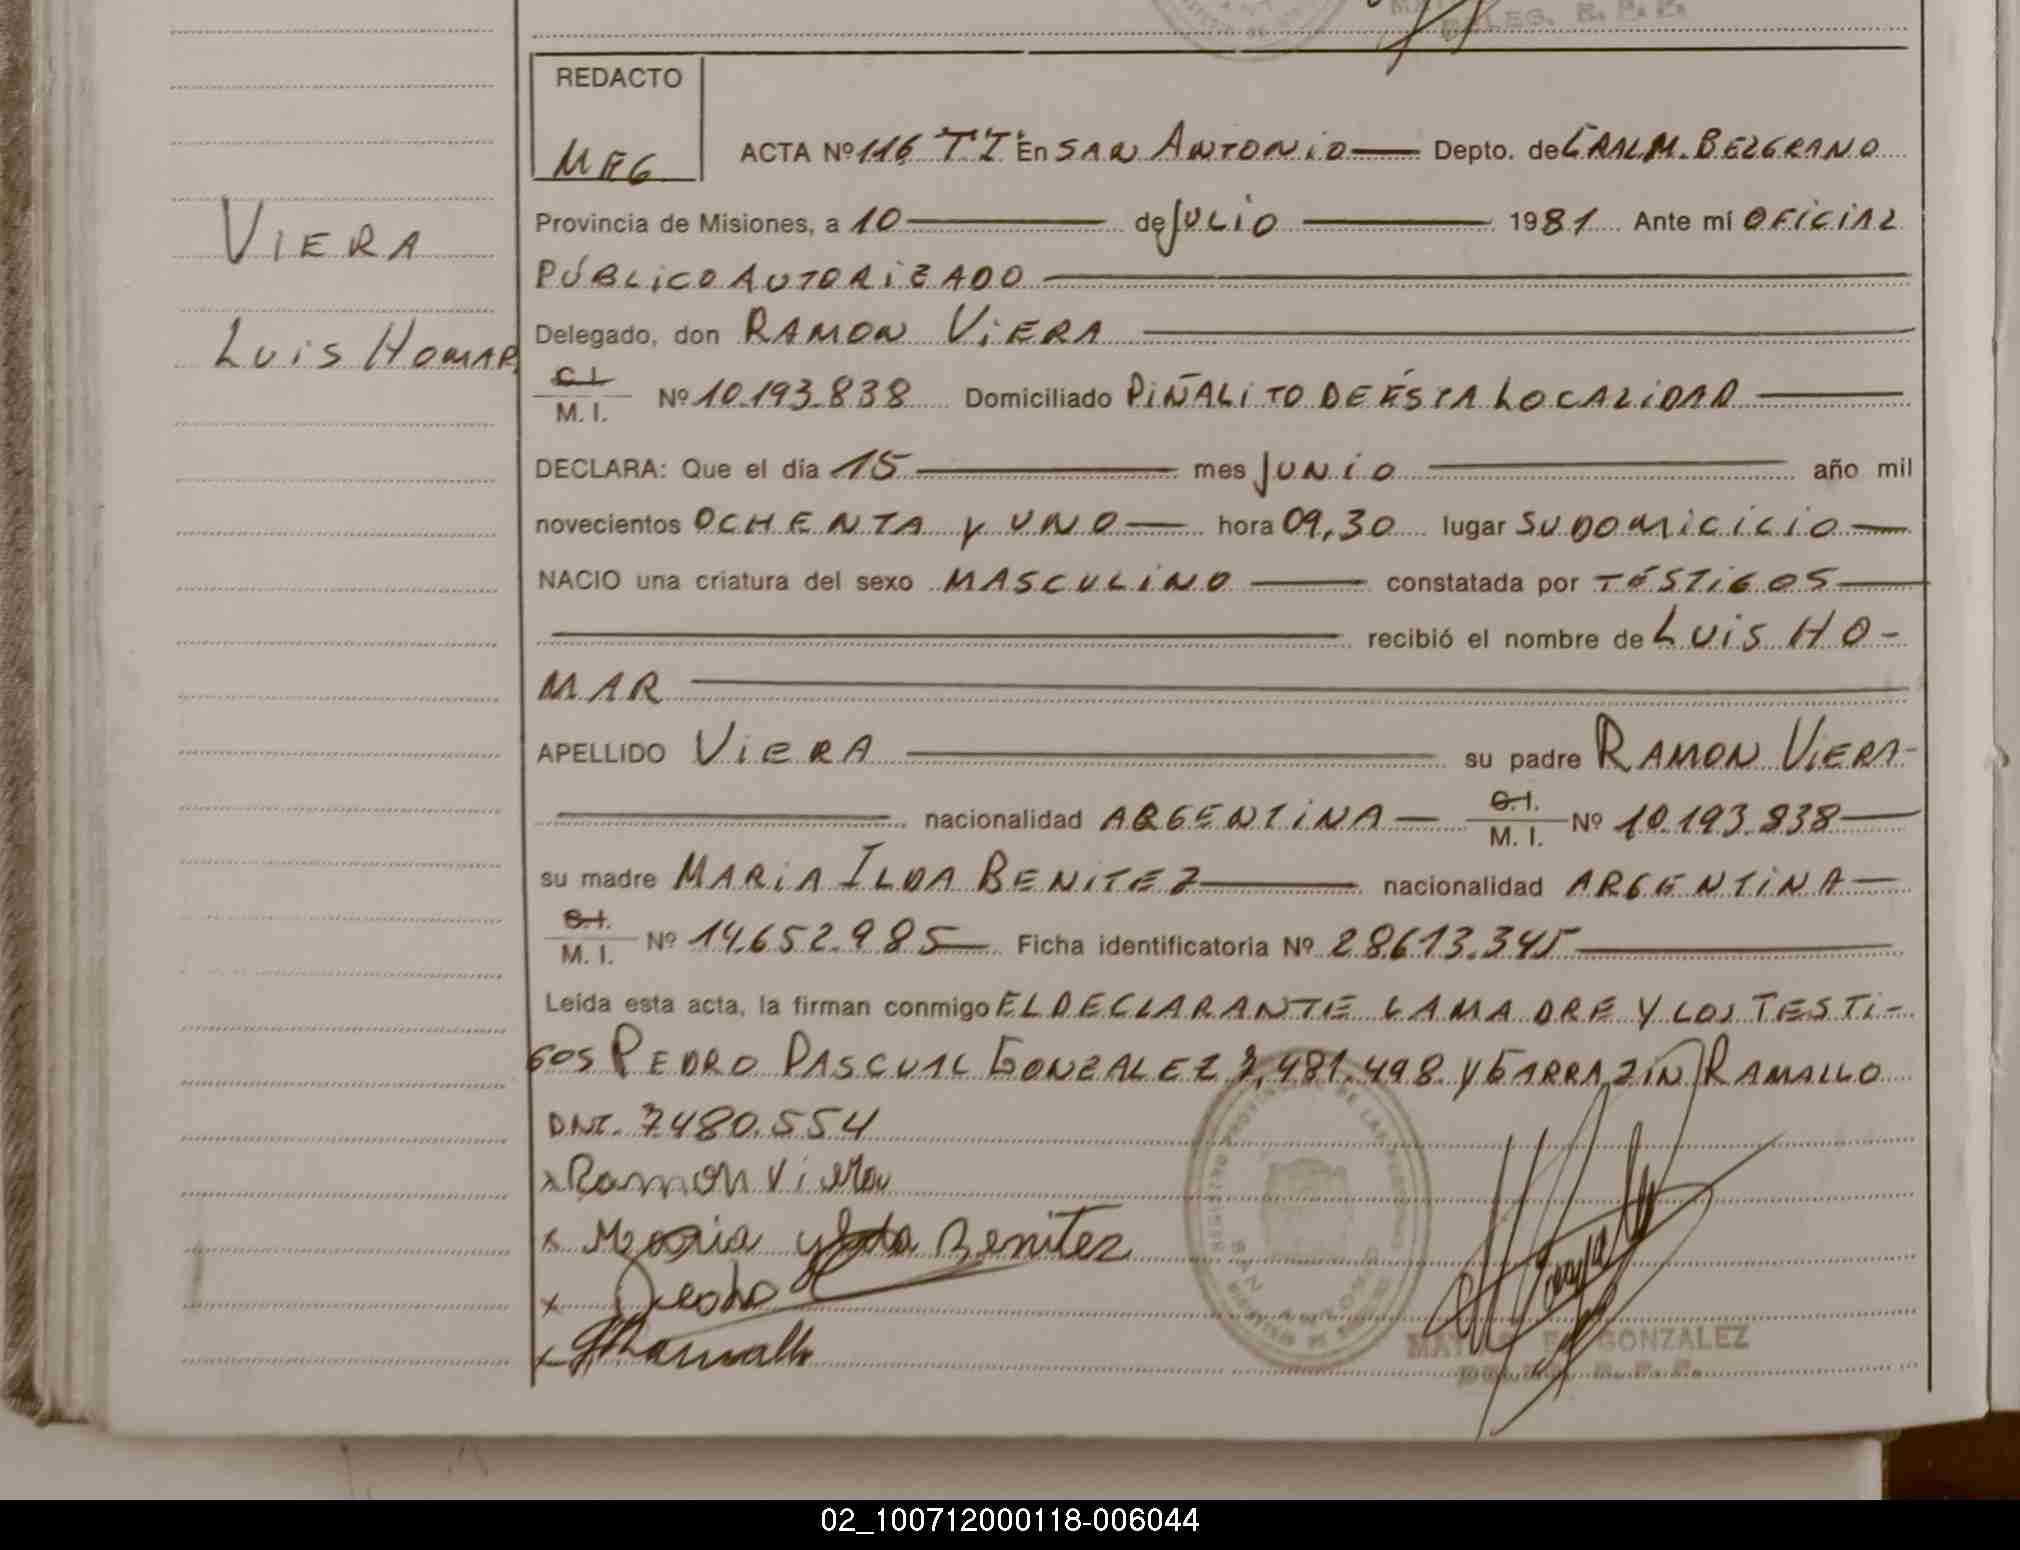 DELEG. R. P. P.
REDACTO
MEG
ACTA Nº 116 TI En SAN ANTONIO Depto. de GRAL M. BELGRANO
Provincia de Misiones, a 10 de JULIO 1981 Ante mí OFICIAL
PÚBLICO AUTORIZADO
Delegado, don RAMON VIERA
VIERA
LUIS HOMAR
C. I.
M. I. Nº 10.193.838 Domiciliado PIÑALITO DE ÉSTA LOCALIDAD
DECLARA: Que el día 15 mes JUNIO año mil
novecientos OCHENTA y UNO hora 09,30 lugar SU DOMICILIO
NACIO una criatura del sexo MASCULINO constatada por TÉSTIGOS
recibió el nombre de LUIS HO-
MAR
APELLIDO VIERA su padre RAMON VIERA
nacionalidad ARGENTINA C. I. M. I. Nº 10.193.838
su madre MARIA ILDA BENITEZ nacionalidad ARGENTINA
C. I. M. I. Nº 14.652.985 Ficha identificatoria Nº 28.613.345
Leída esta acta, la firman conmigo EL DECLARANTE LA MADRE Y LOS TESTI-
GOS PEDRO PASCUAL GONZALEZ 7,481.498. y GARRAZIN RAMALLO
DNI. 7480.554
x Ramon Viera
x Maria ylda Benitez
x Pedro
x Ramallo
SAN ANTONIO
E. GONZALEZ
DELEG. R. P. P.
02_100712000118-006044